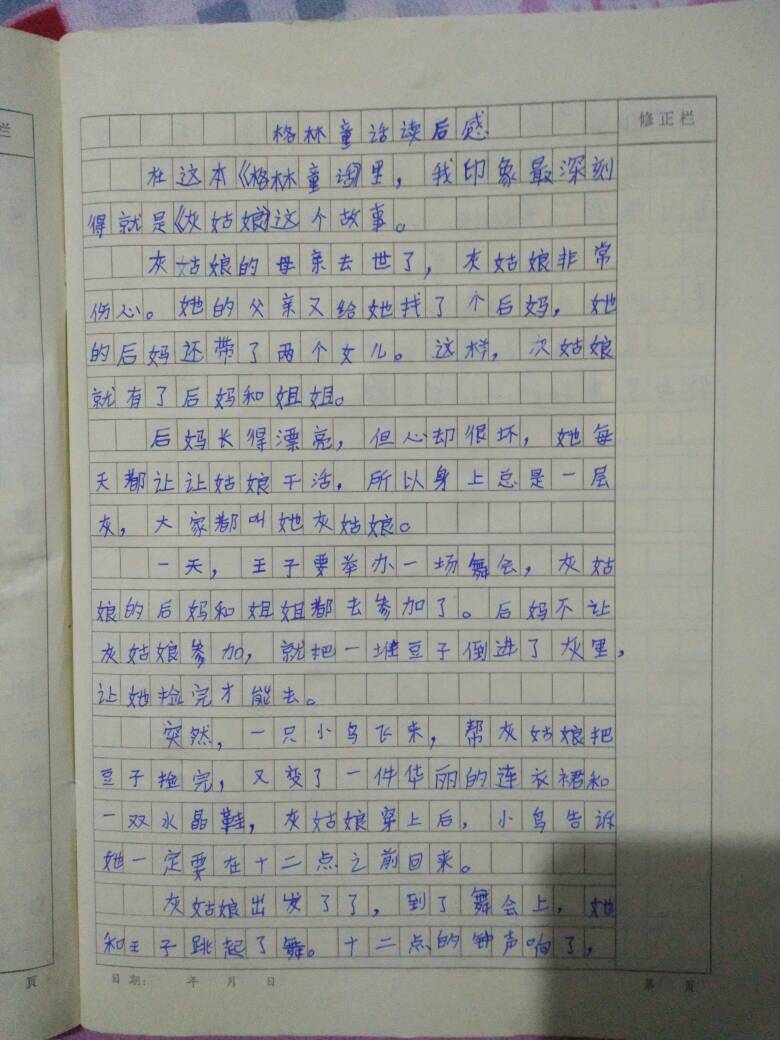 格林童话读后感
修正栏
在这本《格林童话》里，我印象最深刻
得就是《灰姑娘》这个故事。
灰姑娘的母亲去世了，灰姑娘非常
伤心。她的父亲又给她找了个后妈，她
的后妈还带了两个女儿。这样，次姑娘
就有了后妈和姐姐。
后妈长得漂亮，但心却很坏，她每
天都让让姑娘干活，所以身上总是一层
灰，大家都叫她灰姑娘。
一天，王子要举办一场舞会，灰姑
娘的后妈和姐姐都去参加了。后妈不让
灰姑娘参加，就把一堆豆子倒进了灰里，
让她捡完才能去。
突然，一只小鸟飞来，帮灰姑娘把
豆子捡完，又变了一件华丽的连衣裙和
一双水晶鞋，灰姑娘穿上后，小鸟告诉
她一定要在十二点之前回来。
灰姑娘出发了了，到了舞会上，她
和王子跳起了舞。十二点的钟声响了，
日期： 年 月 日
第 页
栏
页